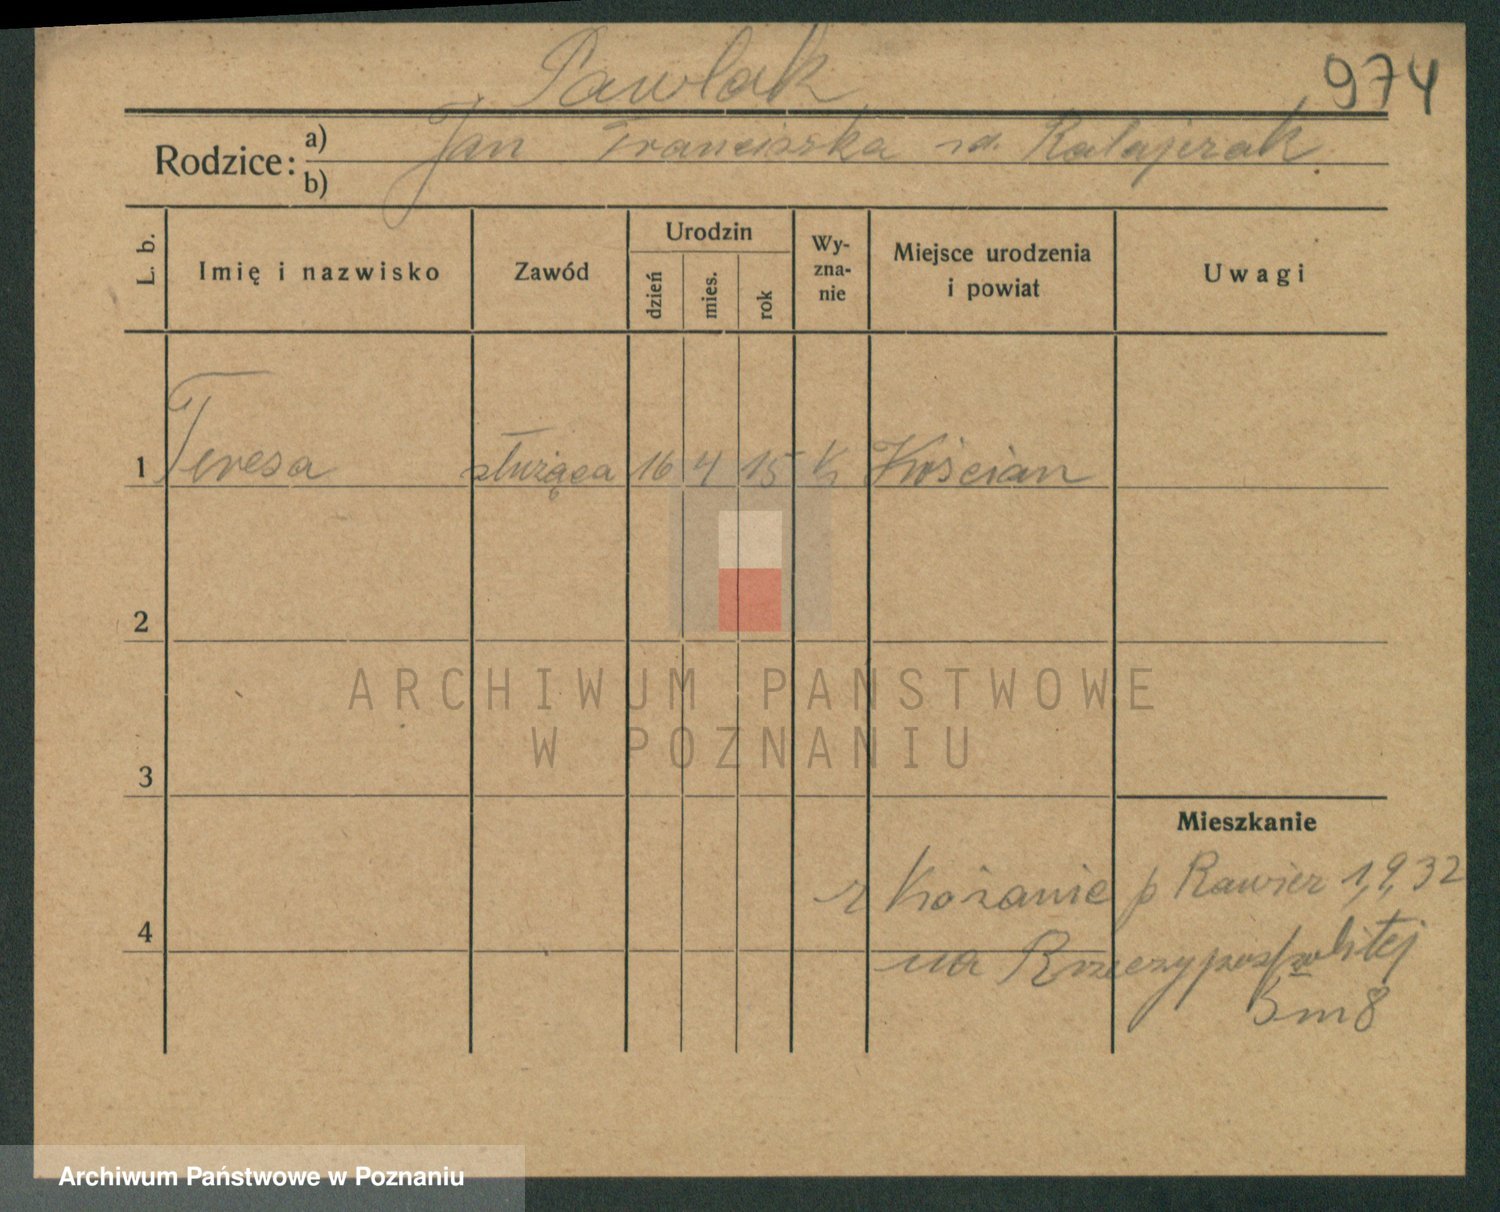 Pawlak
974
Rodzice:
a) Jan Franciszka zd. Ratajczak
b)
L. b.
Imię i nazwisko
Zawód
Urodzin
dzień
mies.
rok
Wy-
zna-
nie
Miejsce urodzenia
i powiat
Uwagi
1 Teresa służąca 16 4 15 k Kościan
2
ARCHIWUM PAŃSTWOWE
W POZNANIU
3
Mieszkanie
z p Rawicz 1,9,32
4
na Rzeczypospolitej
5 m 8
Archiwum Państwowe w Poznaniu